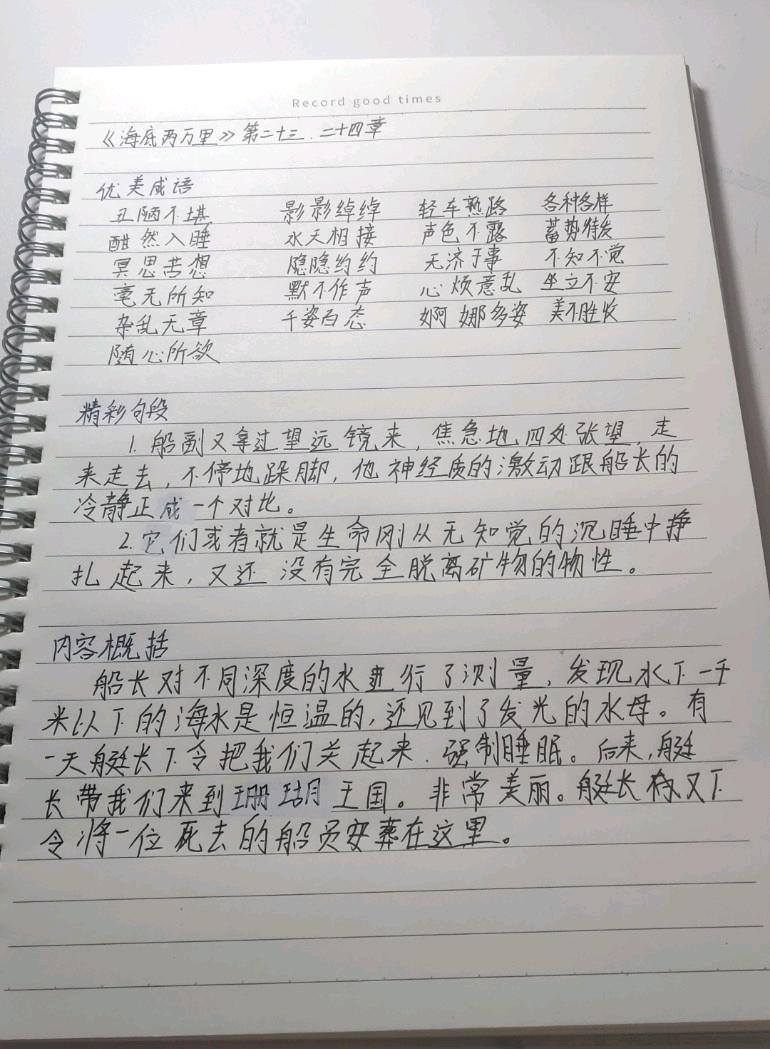 Record good times
《海底两万里》第二十三、二十四章
优美成语
丑陋不堪 影影绰绰 轻车熟路 各种各样
酣然入睡 水天相接 声色不露 蓄势待发
冥思苦想 隐隐约约 无济于事 不知不觉
毫无所知 默不作声 心烦意乱 坐立不安
杂乱无章 千姿百态 婀娜多姿 美不胜收
随心所欲
精彩句段
1. 船副又拿过望远镜来,焦急地四处张望,走
来走去,不停地跺脚,他神经质的激动跟船长的
冷静正成一个对比。
2. 它们或者就是生命刚从无知觉的沉睡中挣
扎起来,又还没有完全脱离矿物的物性。
内容概括
船长对不同深度的水进行了测量,发现水下一千
米以下的海水是恒温的,还见到了发光的水母。有
一天艇长下令把我们关起来.强制睡眠。后来,艇
长带我们来到珊瑚王国。非常美丽。艇长又下
令将一位死去的船员安葬在这里。